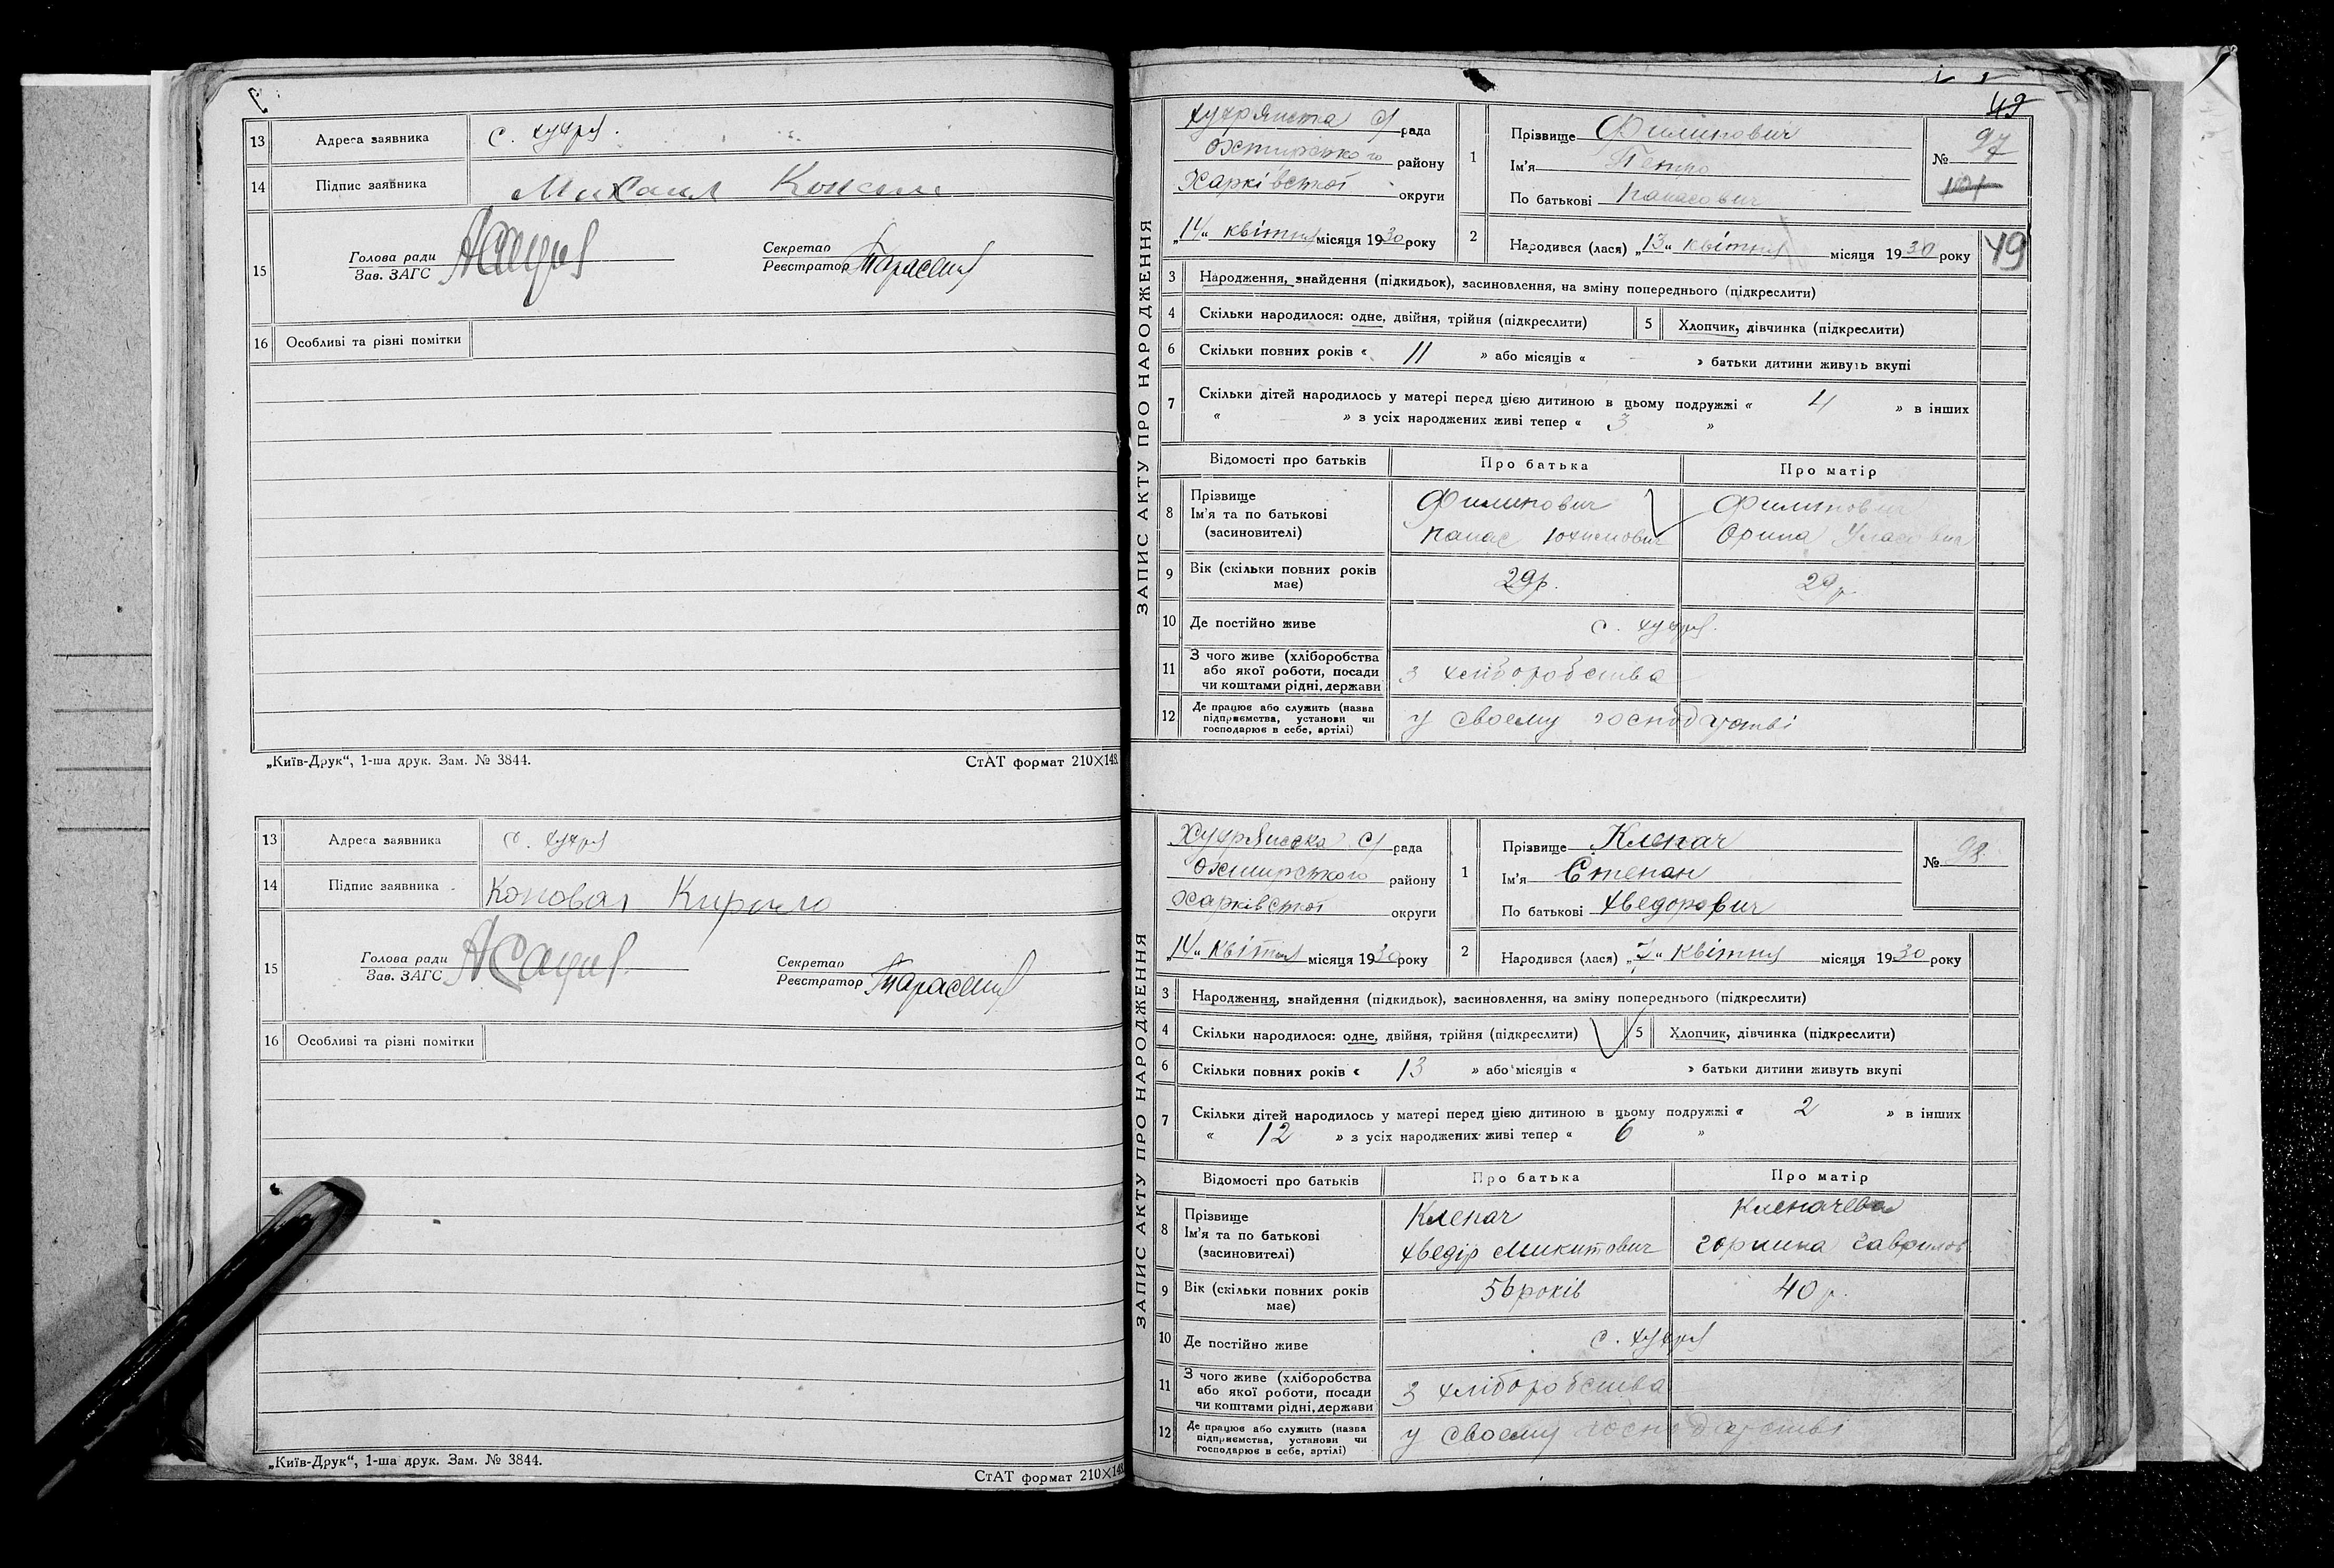 13 Адреса заявника с. Хухря.
14 Підпис заявника Михаил
15 Голова ради
Зав. ЗАГС
Секретар
Реєстратор
16 Особливі та різні помітки
„Київ-Друк“, 1-ша друк. Зам. № 3844.
СтАТ формат 210×148.
13 Адреса заявника с. Хухря
14 Підпис заявника Коновал Кирило
15 Голова ради
Зав. ЗАГС
Секретар
Реєстратор
16 Особливі та різні помітки
„Київ-Друк“, 1-ша друк. Зам. № 3844.
СтАТ формат 210×148
49
ЗАПИС АКТУ ПРО НАРОДЖЕННЯ
рада
Охтирського району
Харківської округи
„14“ квітня місяця 1930 року
1 Прізвище Филипович
Ім'я Петро
По батькові Панасович
№ 97
2 Народився (лася) „13“ квітня місяця 1930 року
49
3 Народження, знайдення (підкидьок), засиновлення, на зміну попереднього (підкреслити)
4 Скільки народилося: одне, двійня, трійня (підкреслити) 5 Хлопчик, дівчинка (підкреслити)
6 Скільки повних років « 11 » або місяців « — » батьки дитини живуть вкупі
7 Скільки дітей народилось у матері перед цією дитиною в цьому подружжі « 4 » в інших
« » з усіх народжених живі тепер « 3 »
Відомості про батьків Про батька Про матір
8 Прізвище Филипович Филипович
Ім'я та по батькові
(засновителі) Панас Юхимович Орина
9 Вік (скільки повних років має) 29р. 29р.
10 Де постійно живе с. Хухря.
11 З чого живе (хліборобства
або якої роботи, посади
чи коштами рідні, держави з хліборобства
12 Де працює або служить (назва
підприємства, установи чи
господарює в себе, артілі) у своему
ЗАПИС АКТУ ПРО НАРОДЖЕННЯ
рада
Охтирського району
Харківської округи
„14“ квітня місяця 1930 року
1 Прізвище Клепач
Ім'я Степан
По батькові Хведорович
№ 98
2 Народився (лася) „7“ квітня місяця 1930 року
3 Народження, знайдення (підкидьок), засиновлення, на зміну попереднього (підкреслити)
4 Скільки народилося: одне, двійня, трійня (підкреслити) 5 Хлопчик, дівчинка (підкреслити)
6 Скільки повних років « 13 » або місяців « » батьки дитини живуть вкупі
7 Скільки дітей народилось у матері перед цією дитиною в цьому подружжі « 2 » в інших
« 12 » з усіх народжених живі тепер « 6 »
Відомості про батьків Про батька Про матір
8 Прізвище Клепач Клепачева
Ім'я та по батькові
(засиновителі) Хведір Микитович
9 Вік (скільки повних років має) 56 років 40 р.
10 Де постійно живе с. Хухря
11 З чого живе (хліборобства
або якої роботи, посади
чи коштами рідні, держави з хліборобства
12 Де працює або служить (назва
підприємства, установи чи
господарює в себе, артілі) у своему господарстві